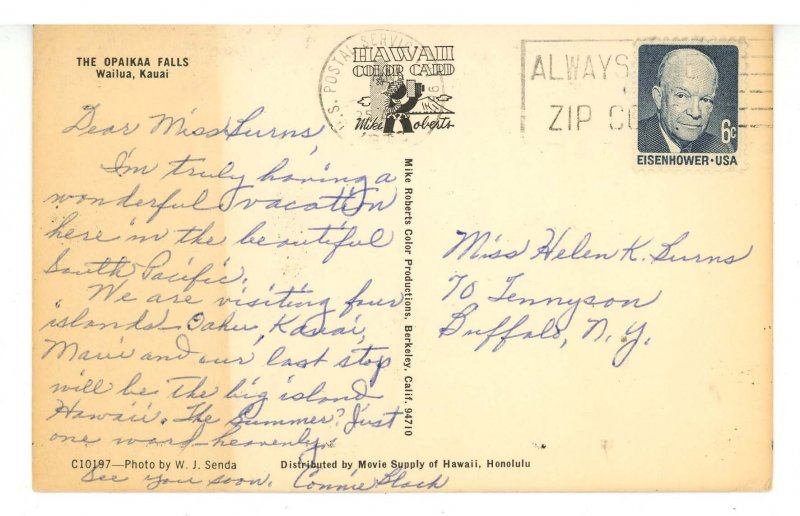 THE OPAIKAA FALLS
Wailua, Kauai
Dear Miss Burns,
I'm truly having a
wonderful vacation
here in the beautiful
South Pacific.
We are visiting four
islands - Oahu, Kauai,
Maui and our last stop
will be the big island
Hawaii. The Summer? Just
one word - heavenly.
See you soon. Connie Black
C10197—Photo by W. J. Senda
Distributed by Movie Supply of Hawaii, Honolulu
Mike Roberts Color Productions, Berkeley, Calif. 94710
U.S. POSTAL SERVICE
HAWAII
COLOR CARD
Mike Roberts
ALWAYS
ZIP CO
6c
EISENHOWER·USA
Miss Helen K. Burns
70 Tennyson
Buffalo, N.Y.